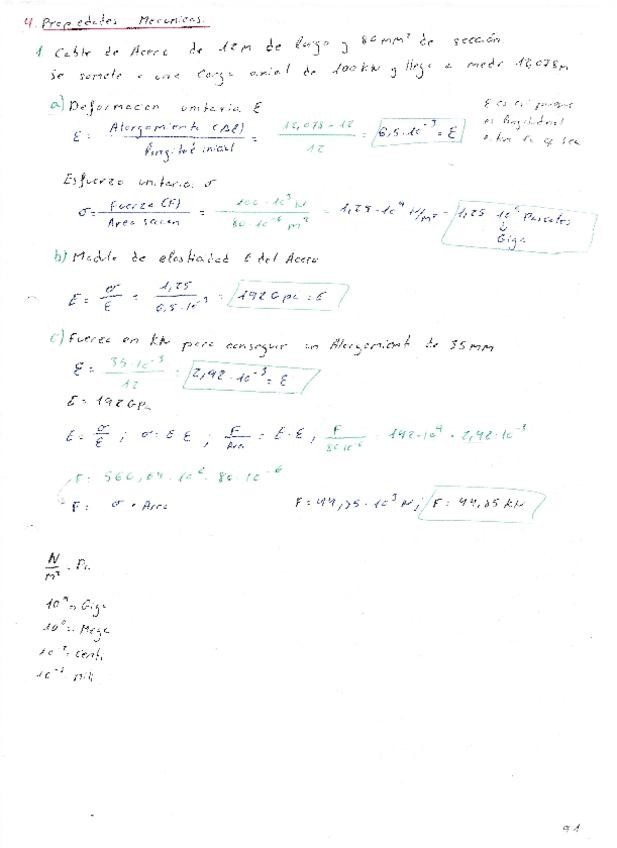 4. Propiedades Mecanicas.
1. Cable de Acero de 12m de largo y 80mm² de sección
se somete a una carga axial de 100kN y llega a medir 12,078m
a) Deformacion unitaria ε
ε = Alargamiento (Δl) / longitud inicial = 12,078-12 / 12 = 6,5·10⁻³ = ε
Esfuerzo unitario σ
σ = Fuerza (F) / Area seccion = 100·10³ N / 80·10⁻⁶ m² = 1,25·10⁹ N/m² = 1,25 10⁹ Pascales
Giga
b) Modulo de elasticidad E del Acero
E = σ / ε = 1,25 / 6,5·10⁻³ = 192 Gpa = E
c) Fuerza en kN para conseguir un Alargamiento de 35mm
ε = 35·10⁻³ / 12 = 2,92·10⁻³ = ε
E = 192 Gpa
E = σ / ε ; σ = E·ε ; F / Area = E·ε ; F / 80·10⁻⁶ = 192·10⁹ · 2,92·10⁻³
F = 560,64·10⁶ · 80·10⁻⁶
F = σ · Area F = 44,85·10³ N; F = 44,85 kN
N / m² = Pa
10⁹ = Giga
10⁶ = Mega
10⁻² = Centi
10⁻³ Mili
91